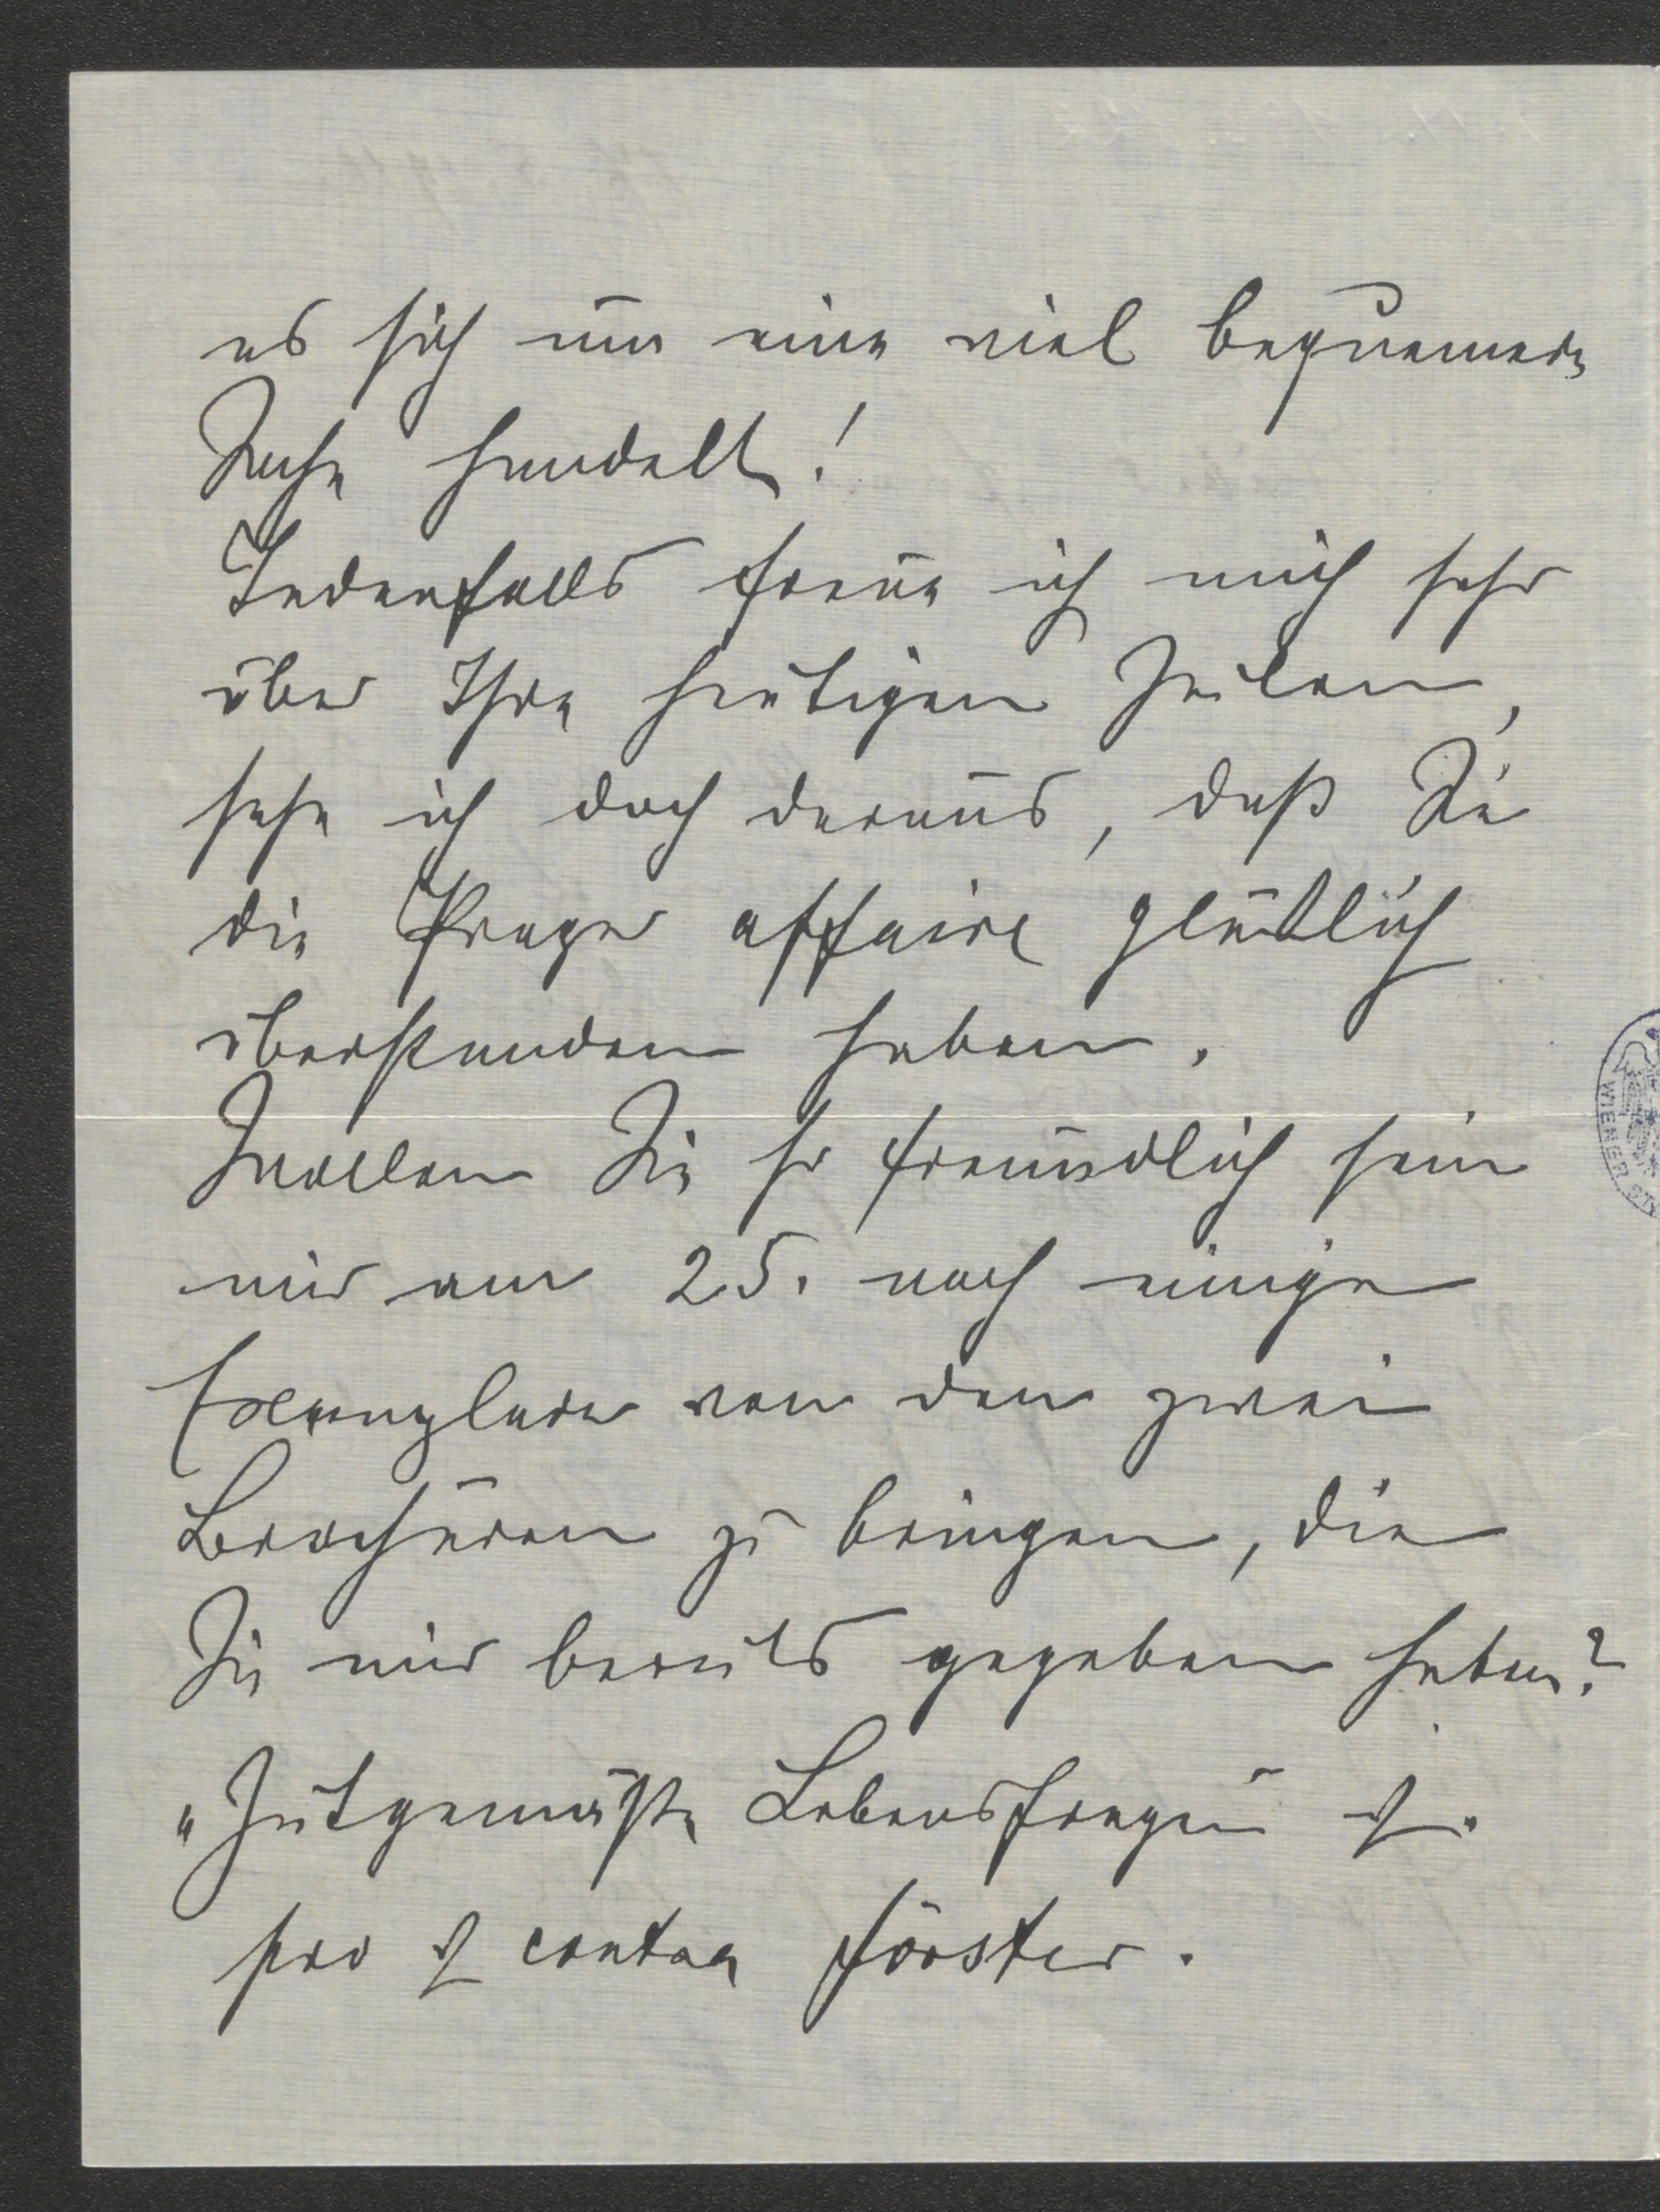 es sich um eine viel bequemere
Sache handelt!
Jedenfalls freue ich mich sehr
über Ihre heutigen Zeilen,
sehe ich doch daraus, daß Sie
die Prager affaire glücklich
überstanden haben.
Wollen Sie so freundlich sein
mir am 25. noch einige
Exemplare von den zwei
Brochuren zu bringen, die
Sie mir bereits gegeben haben?
„Zeitgemäße Lebensfragen &.
pro & contra Förster.
WIENER